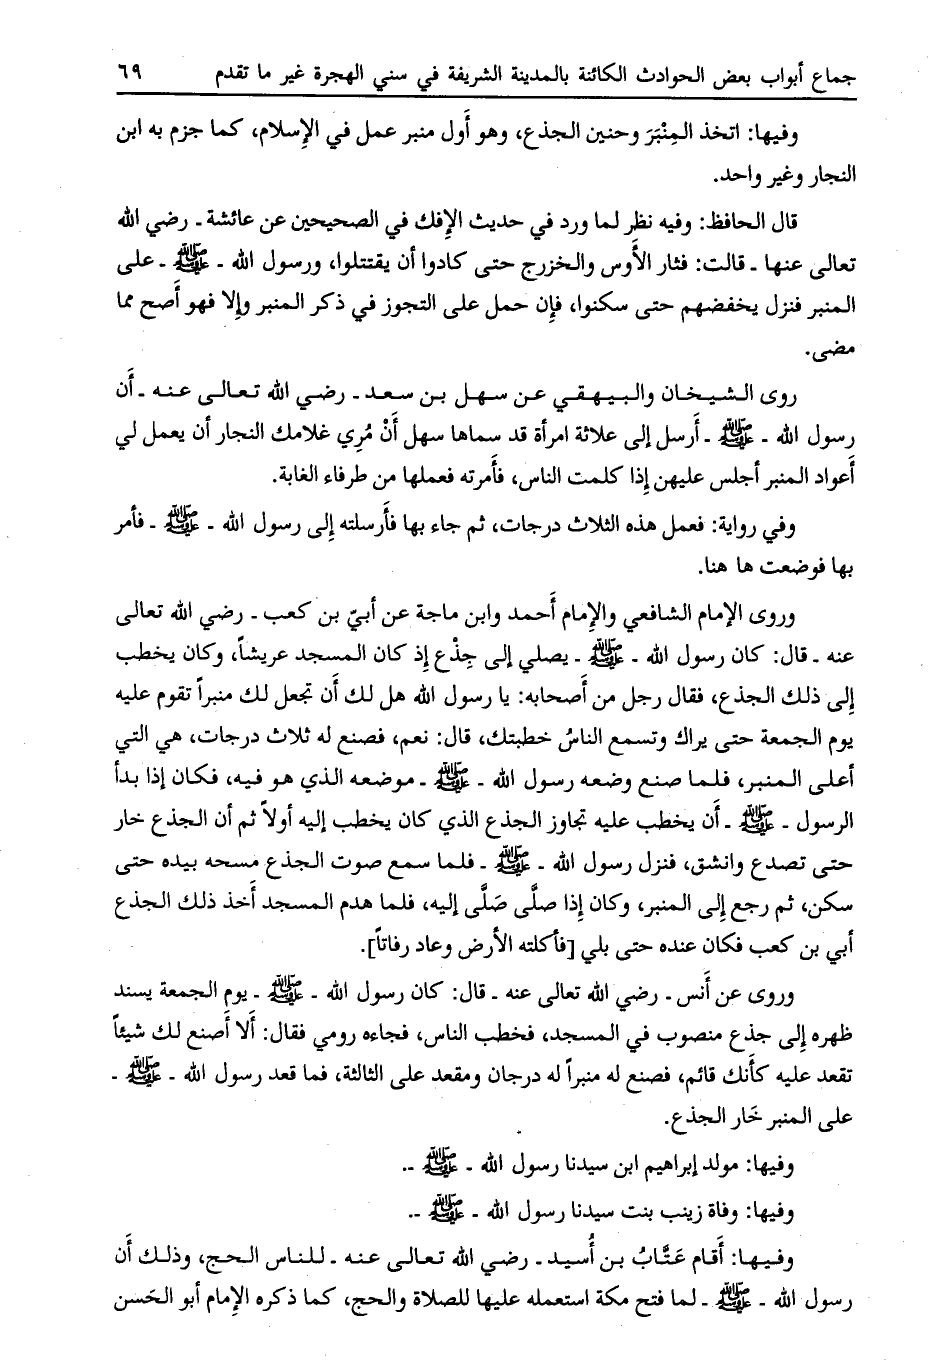 جماع أبواب بعض الحوادث الكائنة بالمدينة الشريفة في سني الهجرة غير ما تقدم ٦٩
وفيها: اتخذ المِنْبَرَ وحنين الجذع، وهو أَول منبر عمل في الإِسلام، كما جزم به ابن
النجار وغير واحد.
قال الحافظ: وفيه نظر لما ورد في حديث الإِفك في الصحيحين عن عائشة ـ رضي الله
تعالى عنها ـ قالت: فثار الأَوس والخزرج حتى كادوا أن يقتتلوا، ورسول الله ـ ﷺ ـ على
المنبر فنزل يخفضهم حتى سكنوا، فإِن حمل على التجوز في ذكر المنبر وإِلا فهو أَصح مما
مضى.
روى الشيخان والبيهقي عن سهل بن سعد ـ رضي الله تعالى عنه ـ أَن
رسول الله ـ ﷺ ـ أَرسل إلى علاثة امرأة قد سماها سهل أَنْ مُرِي غلامك النجار أن يعمل لي
أَعواد المنبر أجلس عليهن إِذا كلمت الناس، فأَمرته فعملها من طرفاء الغابة.
وفي رواية: فعمل هذه الثلاث درجات، ثم جاء بها فأَرسلته إِلى رسول الله ـ ﷺ ـ فأمر
بها فوضعت ها هنا.
وروى الإمام الشافعي والإِمام أَحمد وابن ماجة عن أبيّ بن كعب ـ رضي الله تعالى
عنه ـ قال: كان رسول الله ـ ﷺ ـ يصلي إلى جِذْع إِذ كان المسجد عريشاً، وكان يخطب
إِلى ذلك الجذع، فقال رجل من أَصحابه: يا رسول الله هل لك أَن تجعل لك منبراً تقوم عليه
يوم الجمعة حتى يراك وتسمع الناسُ خطبتك، قال: نعم، فصنع له ثلاث درجات، هي التي
أعلى المنبر، فلما صنع وضعه رسول الله ـ ﷺ ـ موضعه الذي هو فيه، فكان إذا بدأ
الرسول ـ ﷺ ـ أَن يخطب عليه تجاوز الجذع الذي كان يخطب إليه أولاً ثم أن الجذع خار
حتى تصدع وانشق، فنزل رسول الله ـ ﷺ ـ فلما سمع صوت الجذع مسحه بيده حتى
سكن، ثم رجع إِلى المنبر، وكان إِذا صلَّى صَلَّى إليه، فلما هدم المسجد أَخذ ذلك الجذع
أبي بن كعب فكان عنده حتى بلي [فأكلته الأرض وعاد رفاتاً].
وروى عن أَنس ـ رضي الله تعالى عنه ـ قال: كان رسول الله ـ ﷺ ـ يوم الجمعة يسند
ظهره إِلى جذع منصوب في المسجد، فخطب الناس، فجاءه رومي فقال: أَلا أَصنع لك شيئاً
تقعد عليه كأَنك قائم، فصنع له منبراً له درجان ومقعد على الثالثة، فما قعد رسول الله ـ ﷺ ـ
على المنبر خَار الجذع.
وفيها: مولد إبراهيم ابن سيدنا رسول الله ـ ﷺ ـ.
وفيها: وفاة زينب بنت سيدنا رسول الله ـ ﷺ ـ.
وفيها: أَقام عَتَّابُ بن أُسيد ـ رضي الله تعالى عنه ـ للناس الحج، وذلك أَن
رسول الله ـ ﷺ ـ لما فتح مكة استعمله عليها للصلاة والحج، كما ذكره الإِمام أبو الحَسن